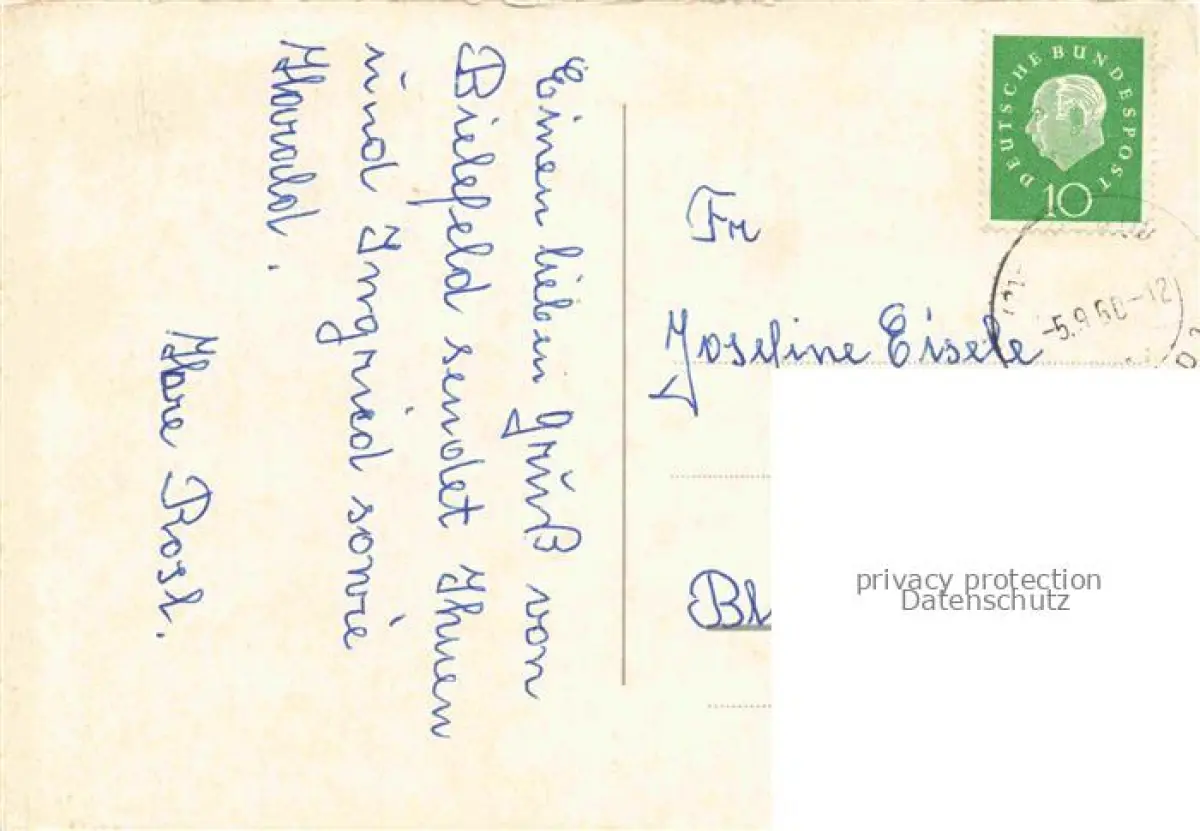 Einen lieben Gruß von
Bielefeld sendet Ihnen
und Ingrid sowie
Harald.
Ihre Rosl.
DEUTSCHE BUNDESPOST
10
-5.9.60-12
Fr
Josefine Eisele
Bl
privacy protection
Datenschutz